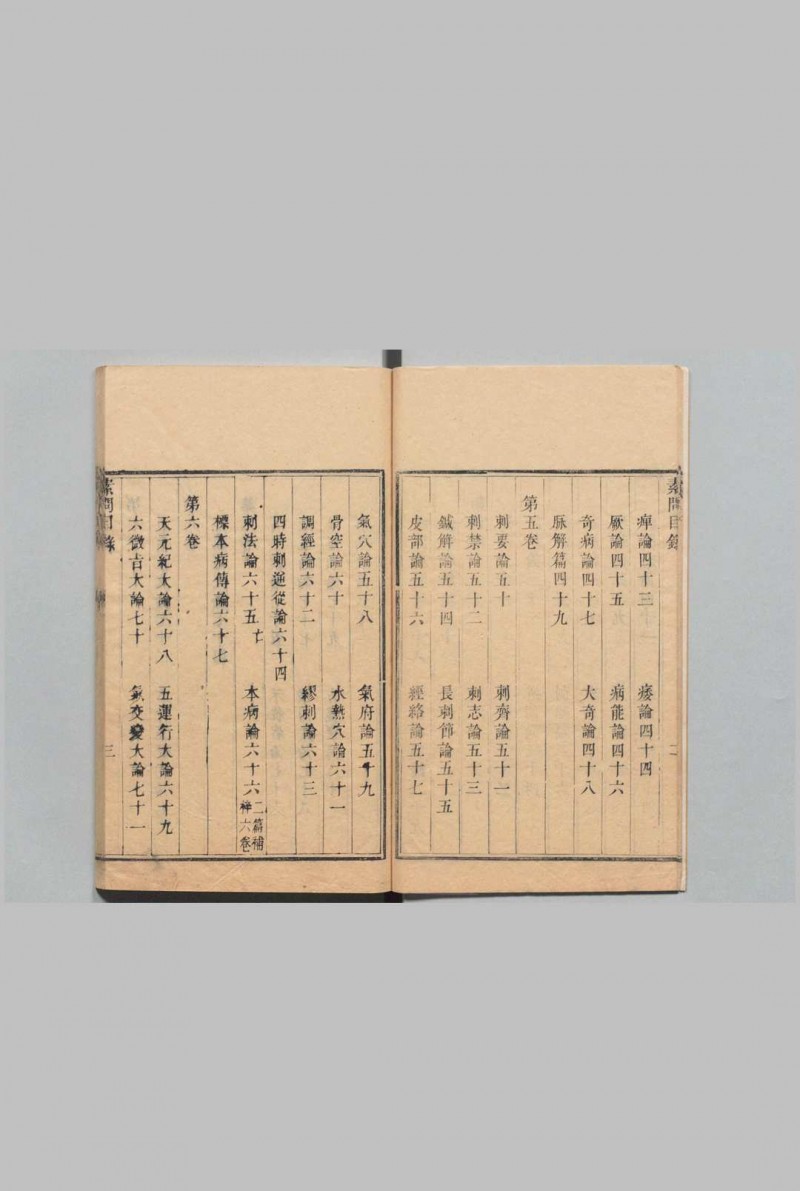 素問目錄
痺論四十三
痿論四十四
厥論四十五
病能論四十六
奇病論四十七
大奇論四十八
脉解篇四十九
第五卷
刺要論五十
刺齊論五十一
刺禁論五十二
刺志論五十三
鍼解論五十四
長刺節論五十五
皮部論五十六
經絡論五十七
二
氣穴論五十八
氣府論五十九
骨空論六十
水熱穴論六十一
調經論六十二
繆刺論六十三
四時刺逆從論六十四
刺法論六十五
本病論六十六
二篇補
六卷
標本病傳論六十七
第六卷
天元紀大論六十八
五運行大論六十九
六微旨大論七十
氣交變大論七十一
素問目錄
三